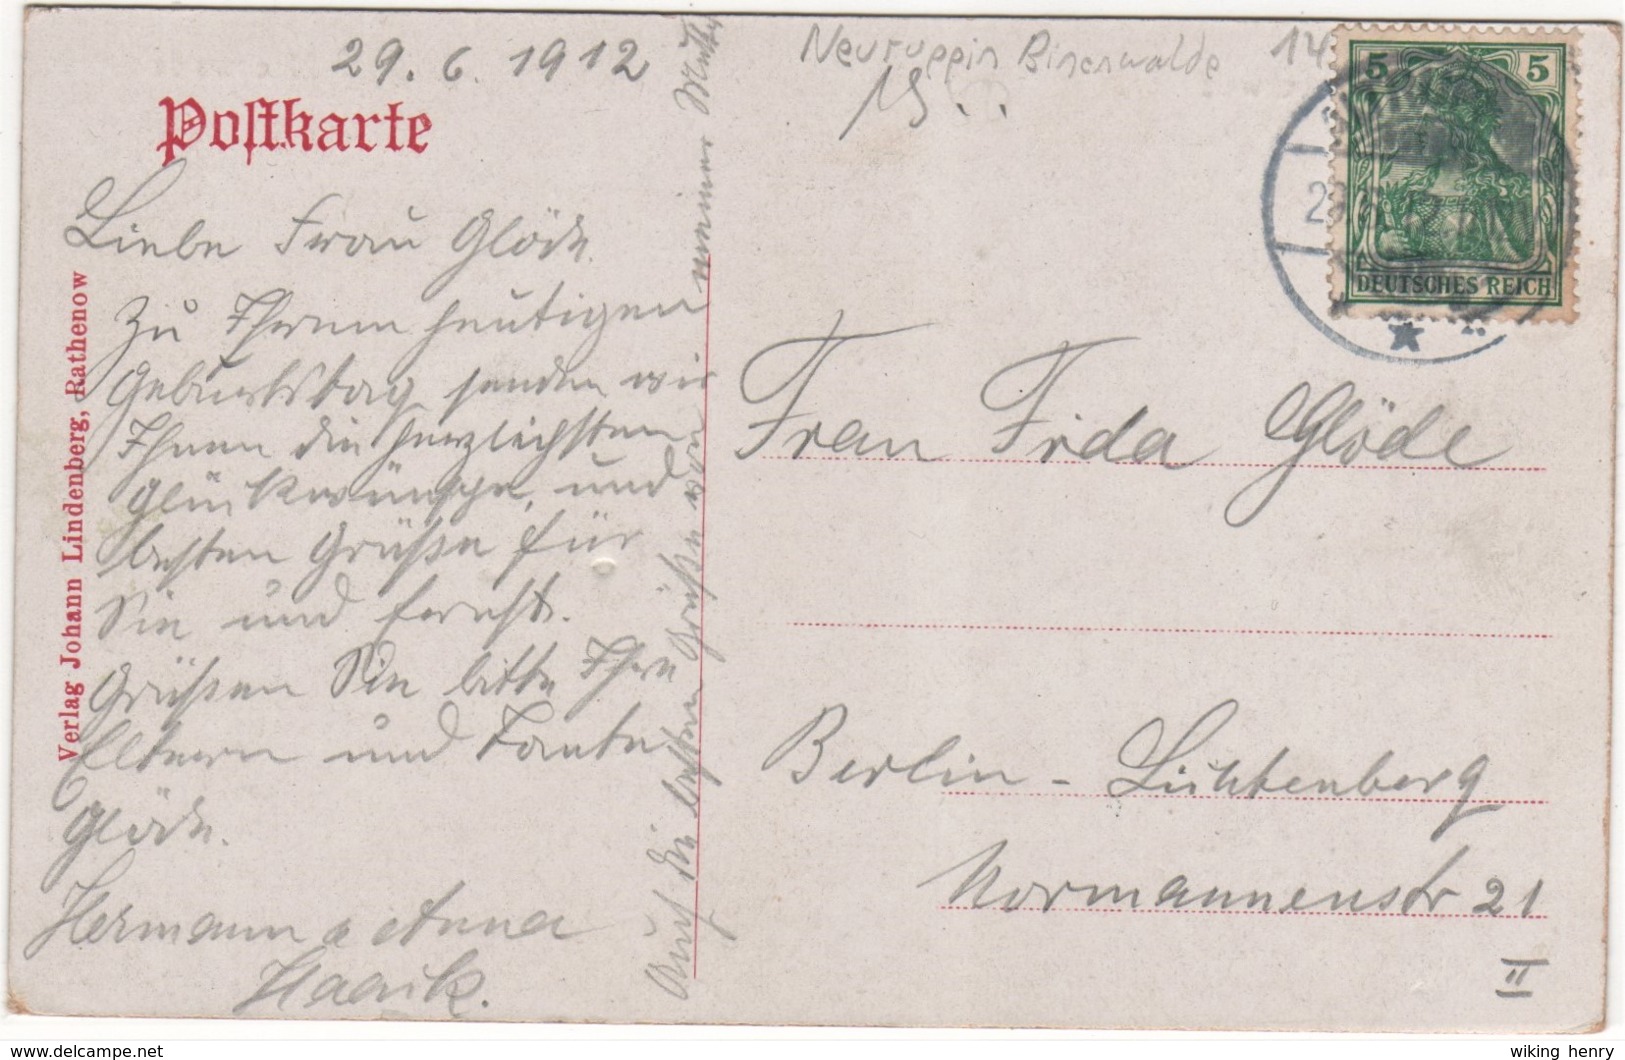 29. 6. 1912
Postkarte
Liebe Frau Glöde.
Zu Ihrem heutigen
Geburtstag senden wir
Ihnen die herzlichsten
Glückwünsche, und
besten Grüße für
Sie und
Grüßen Sie bitte Ihre
Eltern und Tante
Glöde.
Hermann u Anna
Auch die besten Grüße von meiner Mutter
Verlag Johann Lindenberg, Rathenow
Neuruppin Binenwalde 14
15..
5 5
DEUTSCHES REICH
Frau Frida Glöde
Berlin - Lichtenberg
Normannenstr 21
II
delcampe.net
wiking_henry